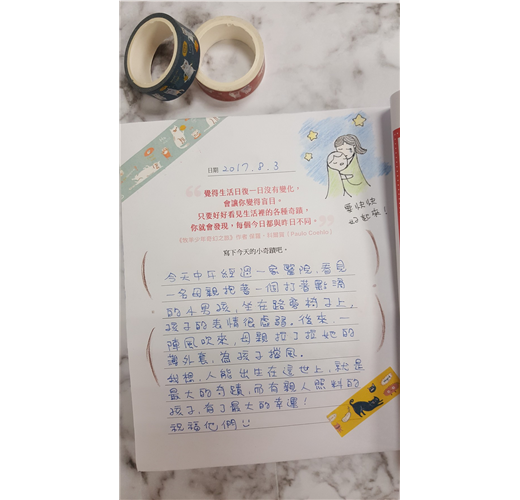 日期 2017.8.3
覺得生活日復一日沒有變化,
會讓你變得盲目。
只要好好看見生活裡的各種奇蹟,
你就會發現,每個今日都與昨日不同。
《牧羊少年奇幻之旅》作者 保羅・科爾賀(Paulo Coelho)
寫下今天的小奇蹟吧。
要快快
好起來!
今天中午經過一家醫院,看見
一名母親抱著一個打著點滴
的小男孩,坐在路旁椅子上,
孩子的表情很虛弱。後來,一
陣風吹來,母親拉了拉她的
薄外套,為孩子擋風。
我想,人能出生在這世上,就是
最大的奇蹟,而有親人照料的
孩子,有了最大的幸運!
祝福他們